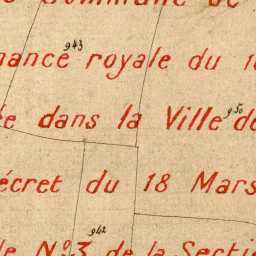 Commune de
943
nance royale du 1
950
ée dans la Ville de
écret du 18 Mars
942
le Nº 3 de la Secti